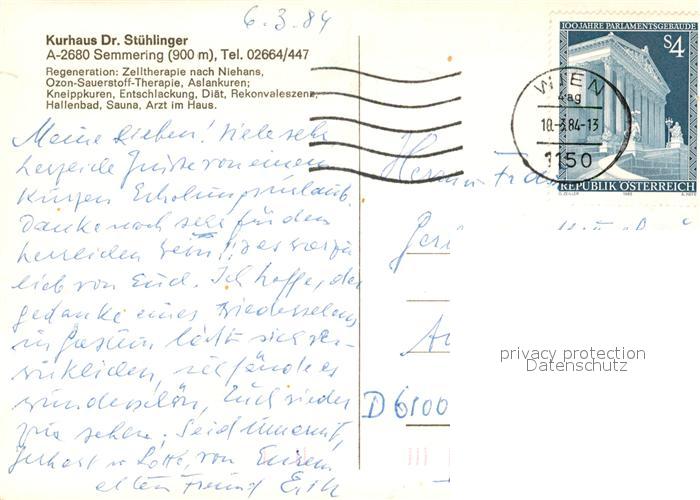 6.3.84
Kurhaus Dr. Stühlinger
A-2680 Semmering (900 m), Tel. 02664/447
Regeneration: Zelltherapie nach Niehans,
Ozon-Sauerstoff-Therapie, Aslankuren;
Kneippkuren, Entschlackung, Diät, Rekonvaleszenz,
Hallenbad, Sauna, Arzt im Haus.
Meine Lieben! Viele sehr
herzliche Grüsse von einem
kurzen Erholungsurlaub.
Danke noch sehr für den
herrlichen Wein!! das war zu
lieb von Euch. Ich hoffe, der
Gedanke eines Wiedersehens
in Gastein lässt sich ver-
wirklichen, ich fände es
wunderschön, Euch wieder
zu sehen. Seid umarmt,
von Eurem
alten Freund
100 JAHRE PARLAMENTSGEBÄUDE
S4
REPUBLIK ÖSTERREICH
WIEN
4ag
10.-3.84-13
1150
Herrn
D 6100
privacy protection
Datenschutz